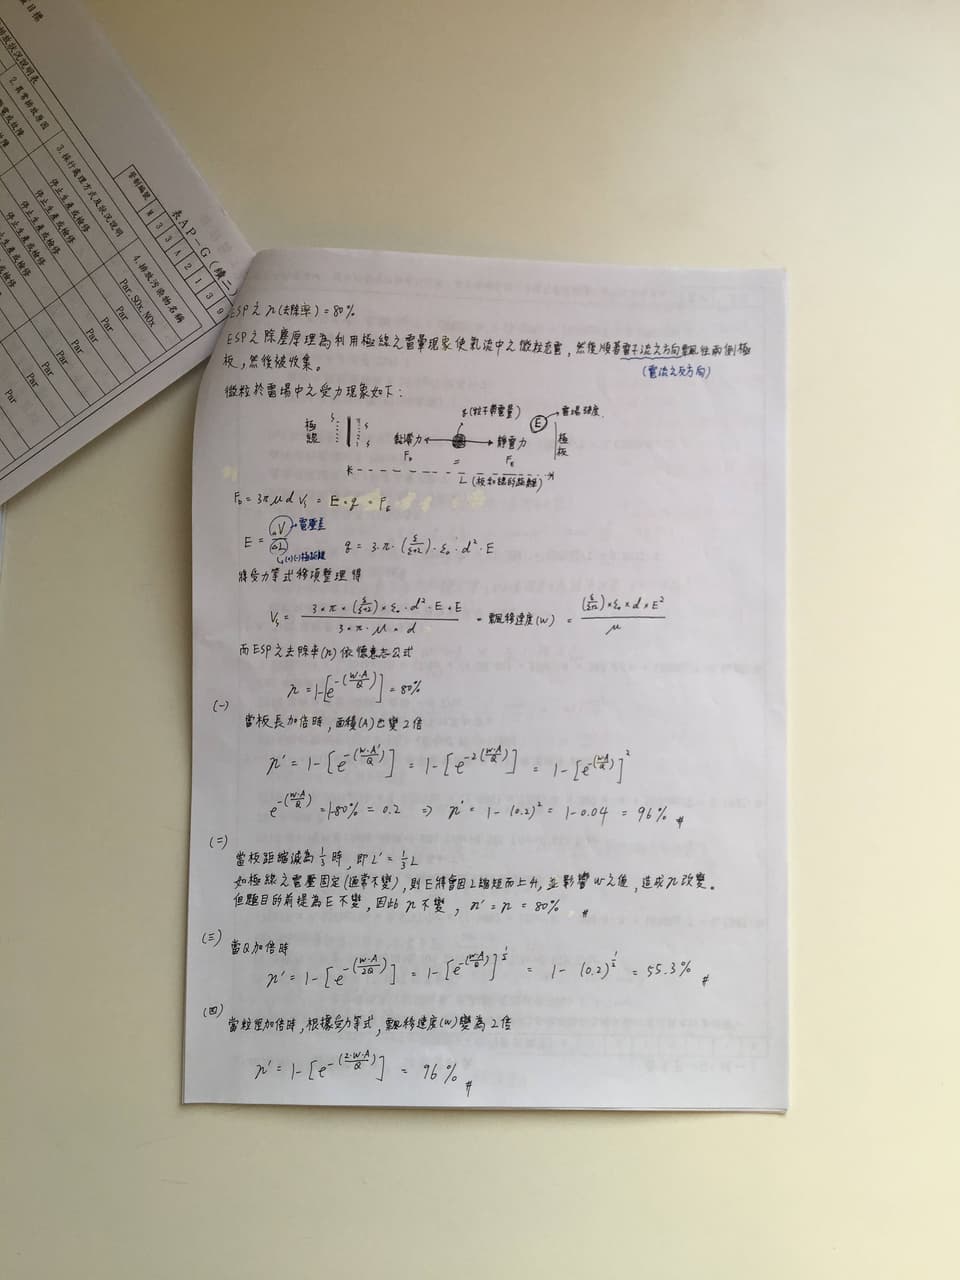 表AP-G(續二)
管制編號 H 3 3 A 2 1 3 9
4.排放污染物名稱
3.採行處理方式及狀況說明
2.異常排放原因
排放狀況說明表
Par,SOx,NOx
Par
Par
Par
Par
Par
停止生產或檢修
停止生產或檢修
停止生產或檢修
停止生產或檢修
ESP之η(去除率)=80%
ESP之除塵原理為利用極線之電暈現象使氣流中之微粒悲電,然後順著電子流之方向飄性兩側極
板,然後被收集。
(電流之反方向)
微粒於電場中之受力現象如下:
q(粒子帶電量) E 電場強度
極線 黏滯力 靜電力 極板
F_D = F_E
L (板和線的距離)
F_D = 3πμd V_s = E·q = F_E
E = ΔV/ΔL 電壓差 q = 3·π·(ε/(ε+2))·ε₀·d²·E
(+)(-)極距離
將受力等式移項整理得
V_s = (3×π×(ε/(ε+2))×ε₀·d²·E×E)/(3×π·μ×d) = 飄移速度(w) = ((ε/(ε+2))×ε₀×d×E²)/μ
而ESP之去除率(η)依德意志公式
η = 1-[e^-(W·A/Q)] = 80%
(一)
當板長加倍時,面積(A)也變2倍
η' = 1-[e^-(W·A'/Q)] = 1-[e^-2(W·A/Q)] = 1-[e^-(W·A/Q)]²
e^-(W·A/Q) = 1-80% = 0.2 ⇒ η' = 1-(0.2)² = 1-0.04 = 96% #
(二)
當板距縮減為1/3時,即L'=1/3L
如極線之電壓固定(通常不變),則E將會因L縮短而上升,並影響w之值,造成η改變。
但題目的前提為E不變,因此η不變,η'=η=80% #
(三) 當Q加倍時
η' = 1-[e^-(W·A/2Q)] = 1-[e^-(W·A/Q)]^1/2 = 1-(0.2)^1/2 = 55.3% #
(四)
當粒徑加倍時,根據受力等式,飄移速度(w)變為2倍
η' = 1-[e^-(2·W·A/Q)] = 96% #